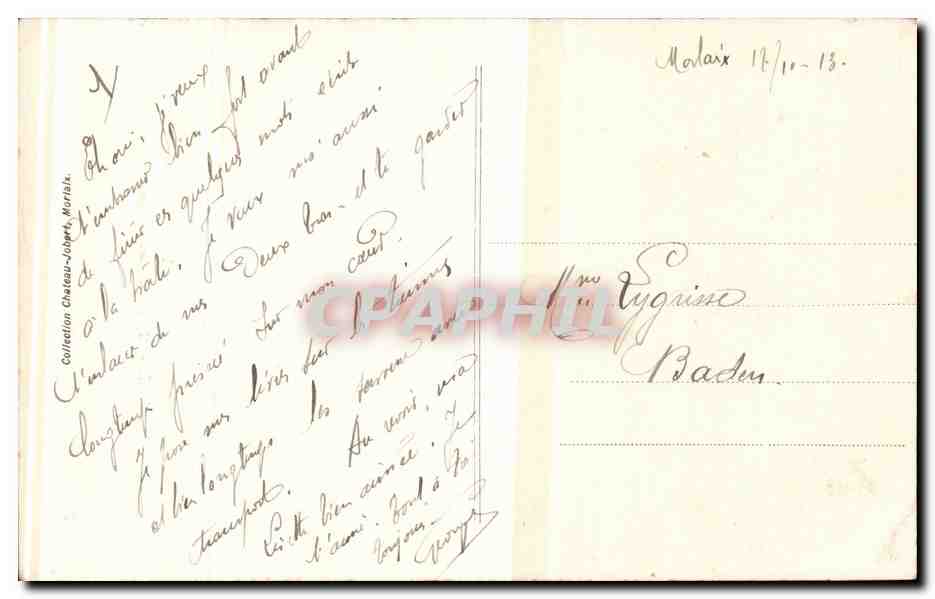 Morlaix 17/10-13.
Eh oui, je veux
t'embrasser bien fort avant
de finir ces quelques mots écrits
à la hâte. Je veux moi aussi
t'enlacer de mes deux bras et te garder
longtemps pressée sur mon cœur.
Je pose mes lèvres sur les tiennes
et bien longtemps les savoure avec
transport. Au revoir, ma
Lisette bien aimée! Je
t'aime. Tout à toi
toujours
Mme Lygrisse
Baden.
Collection Chateau-Jobert, Morlaix.
CPAPHIL